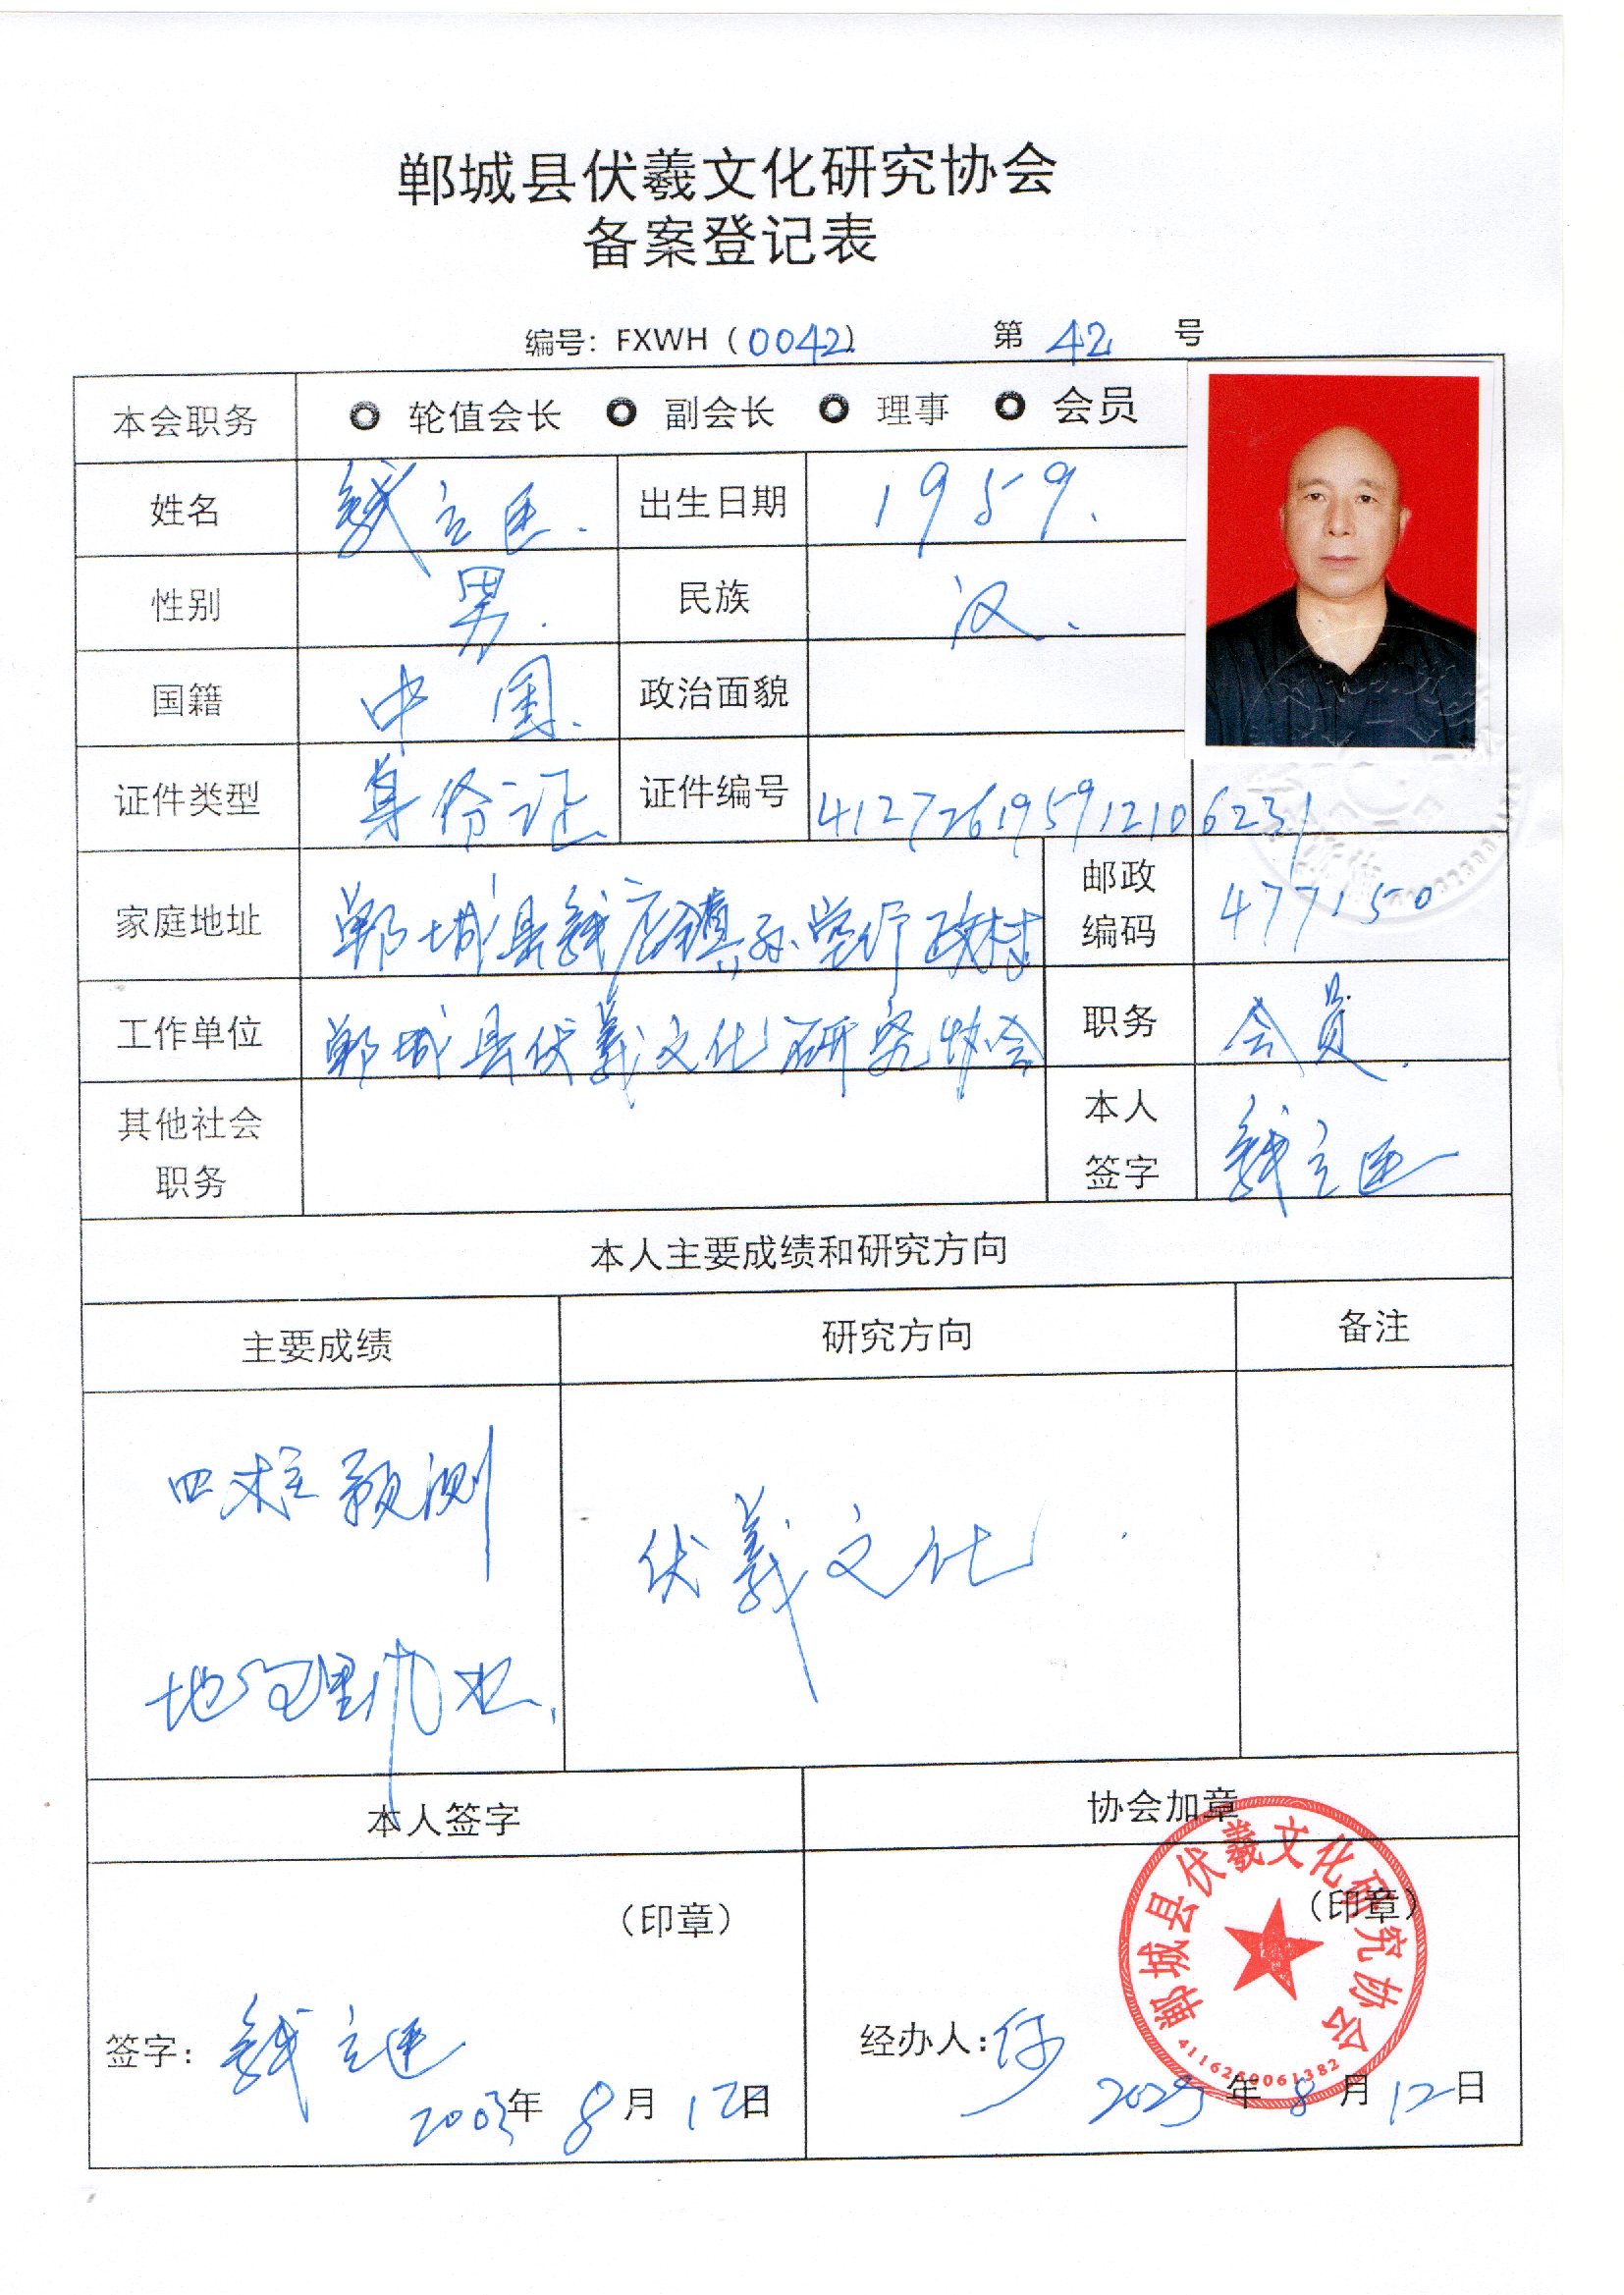 郸城县伏羲文化研究协会
备案登记表
编号：FXWH（0042） 第 42 号
本会职务 轮值会长 副会长 理事 会员
姓名 钱立 出生日期 1959.
性别 男. 民族 汉.
国籍 中国. 政治面貌
证件类型 身份证 证件编号 412726195912106231
家庭地址 郸城县钱店镇孙堂行政村 邮政编码 477150
工作单位 郸城县伏羲文化研究协会 职务 会员.
其他社会职务 本人签字 钱立
本人主要成绩和研究方向
主要成绩 研究方向 备注
四柱预测
伏羲文化
地理风水.
本人签字 协会加章
（印章） （印章）
郸城县伏羲文化研究协会
4116250061382
签字：钱立 经办人：
2003年 8月 12日 2023年 8月 12日